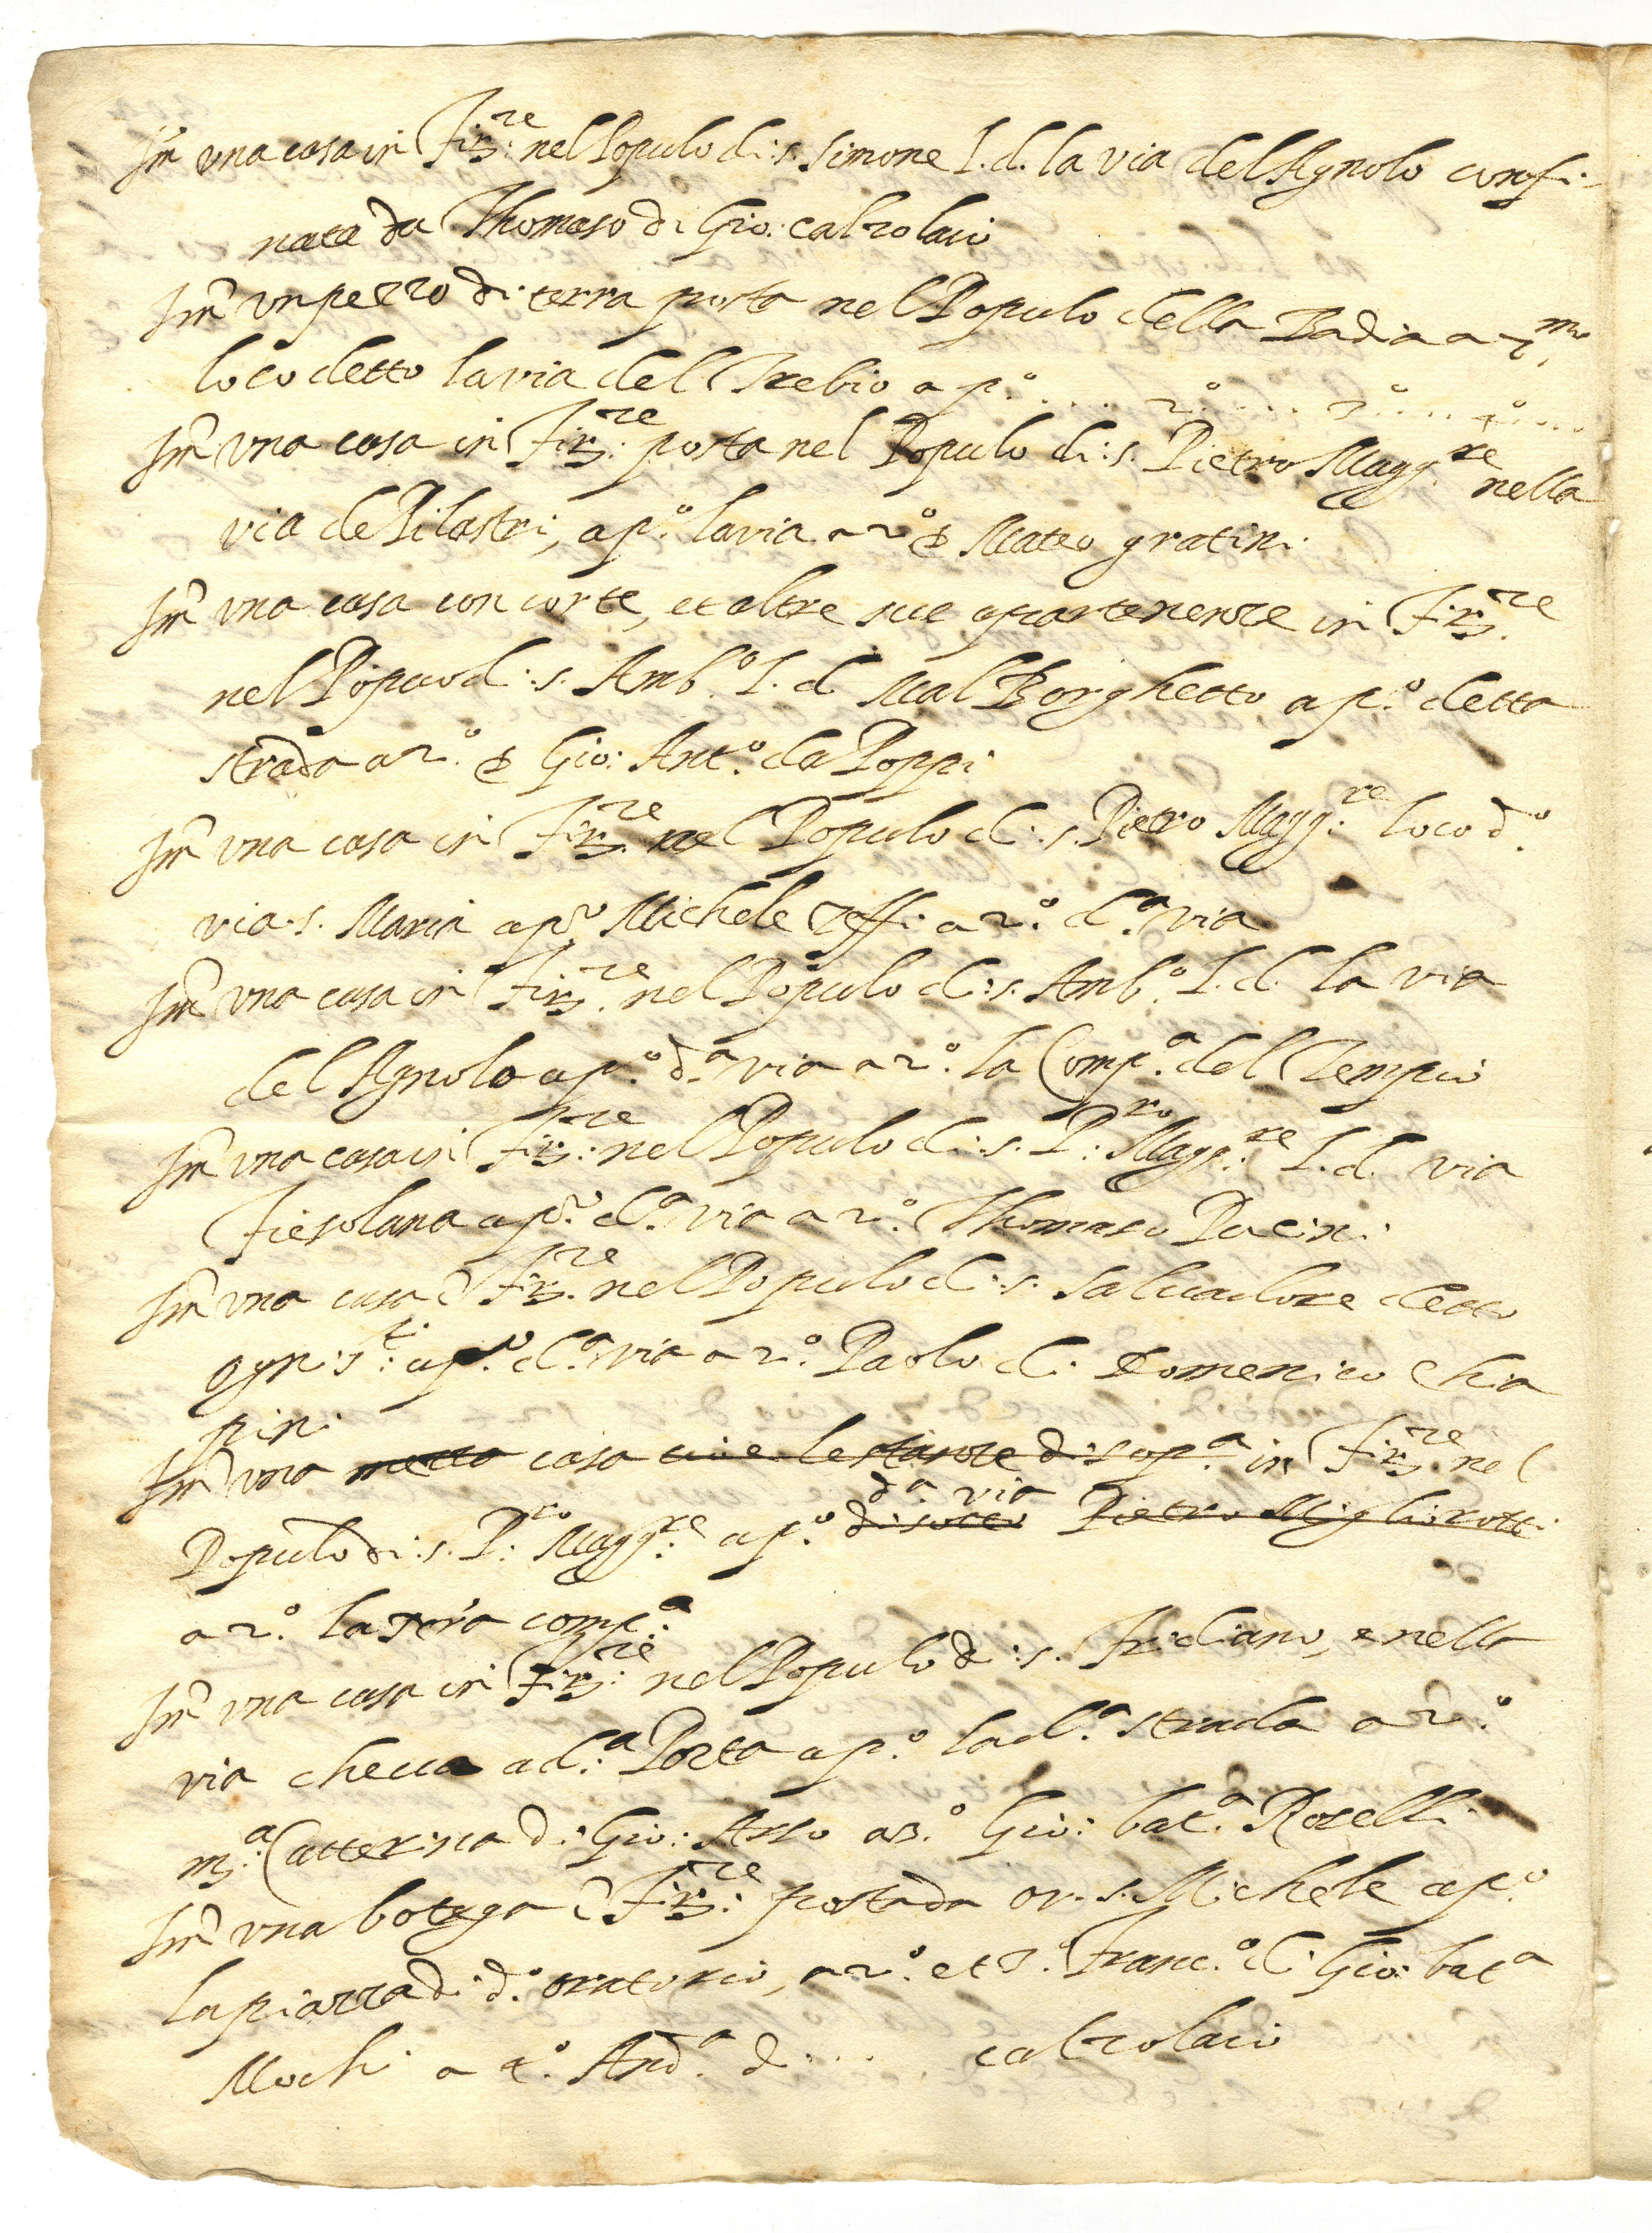 Im una casa in Firz.re nel Populo di s. Simone l. d. la via del Agnolo confi-
nata da Thomaso di Gio: calzolaio
Im un pezzo di terra posta nel Populo della Badia a
loco detto la via del Trebio a p.o .... 2.o .... 3.o .... 4.o ....
Im una casa in Firz.re posta nel Populo di s. Pietro Magg.re nella
via de Pilastri, a p.o la via a 2.o Mateo gratini
Im una casa con corte, et altre sue apartenenze in Firz.re
nel Popuo d: s. Amb.o l. d. Mal Borghetto a p.o detta
strada a 2.o Gio: Ant.o da Poppi
Im una casa in Firz.re nel Populo d: s. Pietro Magg.re loco d.o
via s. Maria a p.o Michele Zeffi a 2.o d.a via
Im una casa in Firz.re nel Populo d: s. Amb.o l. d. la via
del Agnolo a p.o d.a via a 2.o la Comp.a del Tempio
Im una casa in Firz.re nel Populo d: s. P.ro Magg.re l. d. via
Fiesolana a p.o d.a via a 2.o Thomaso Pacini
Im una casa i Firz.re nel Populo d: s. Salvadore detto
ogni s.ti a p.o d.a via a 2.o Paolo di Domenico Chia
pini
Im una mezza casa cioè le stanze di sop.a in Firz.re nel
d.a via
Populo di s. P.ro Magg.re a p.o di sotto Pietro Migliorotti
a 2.o la comp.a
Im una casa in Firz.re nel Populo di s. Fridiano, e nella
via che va a d.a Porta a p.o la d.a strada a 2.o
m.a Catterina di Gio: a 3.o Gio: bat.a Roselli
Im una botega i Firz.re posta da or s. Michele a p.o
la piazza di d.o oratorio, a 2.o et 3.o Franc.o di Gio: bat.a
Mochi a 4.o And.a d: .... calzolaio